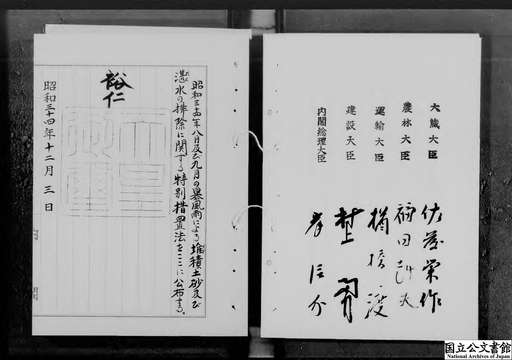 昭和三十四年八月及び九月の暴風雨による堆積土砂及び
湛水の排除に関する特別措置法をここに公布する。
裕仁
昭和三十四年十二月三日
内閣
大蔵大臣 佐藤栄作
農林大臣 福田赳夫
運輸大臣 楢橋渡
建設大臣 村上勇
内閣総理大臣 岸信介
国立公文書館
National Archives of Japan